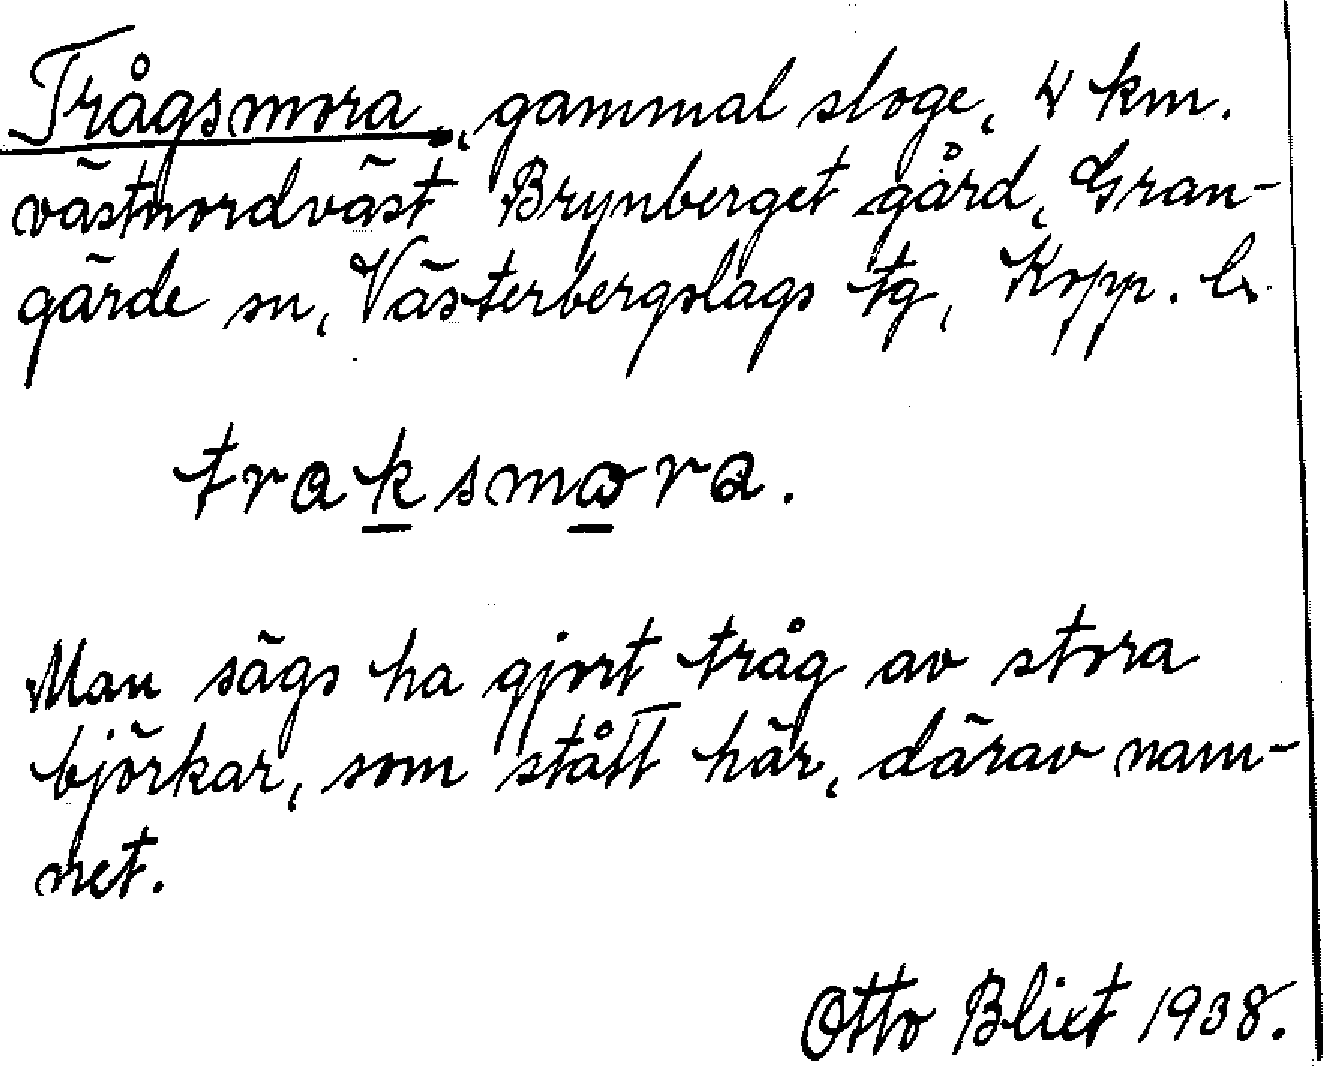 Trågsmora, gammal sloge, 4 km.
västnordväst Brynberget gård, Gran-
gärde sn, Västerbergslags tg, Kopp. l.
traksmora.
Man sägs ha gjort tråg av stora
björkar, som stått här, därav nam-
net.
Otto Blixt 1938.